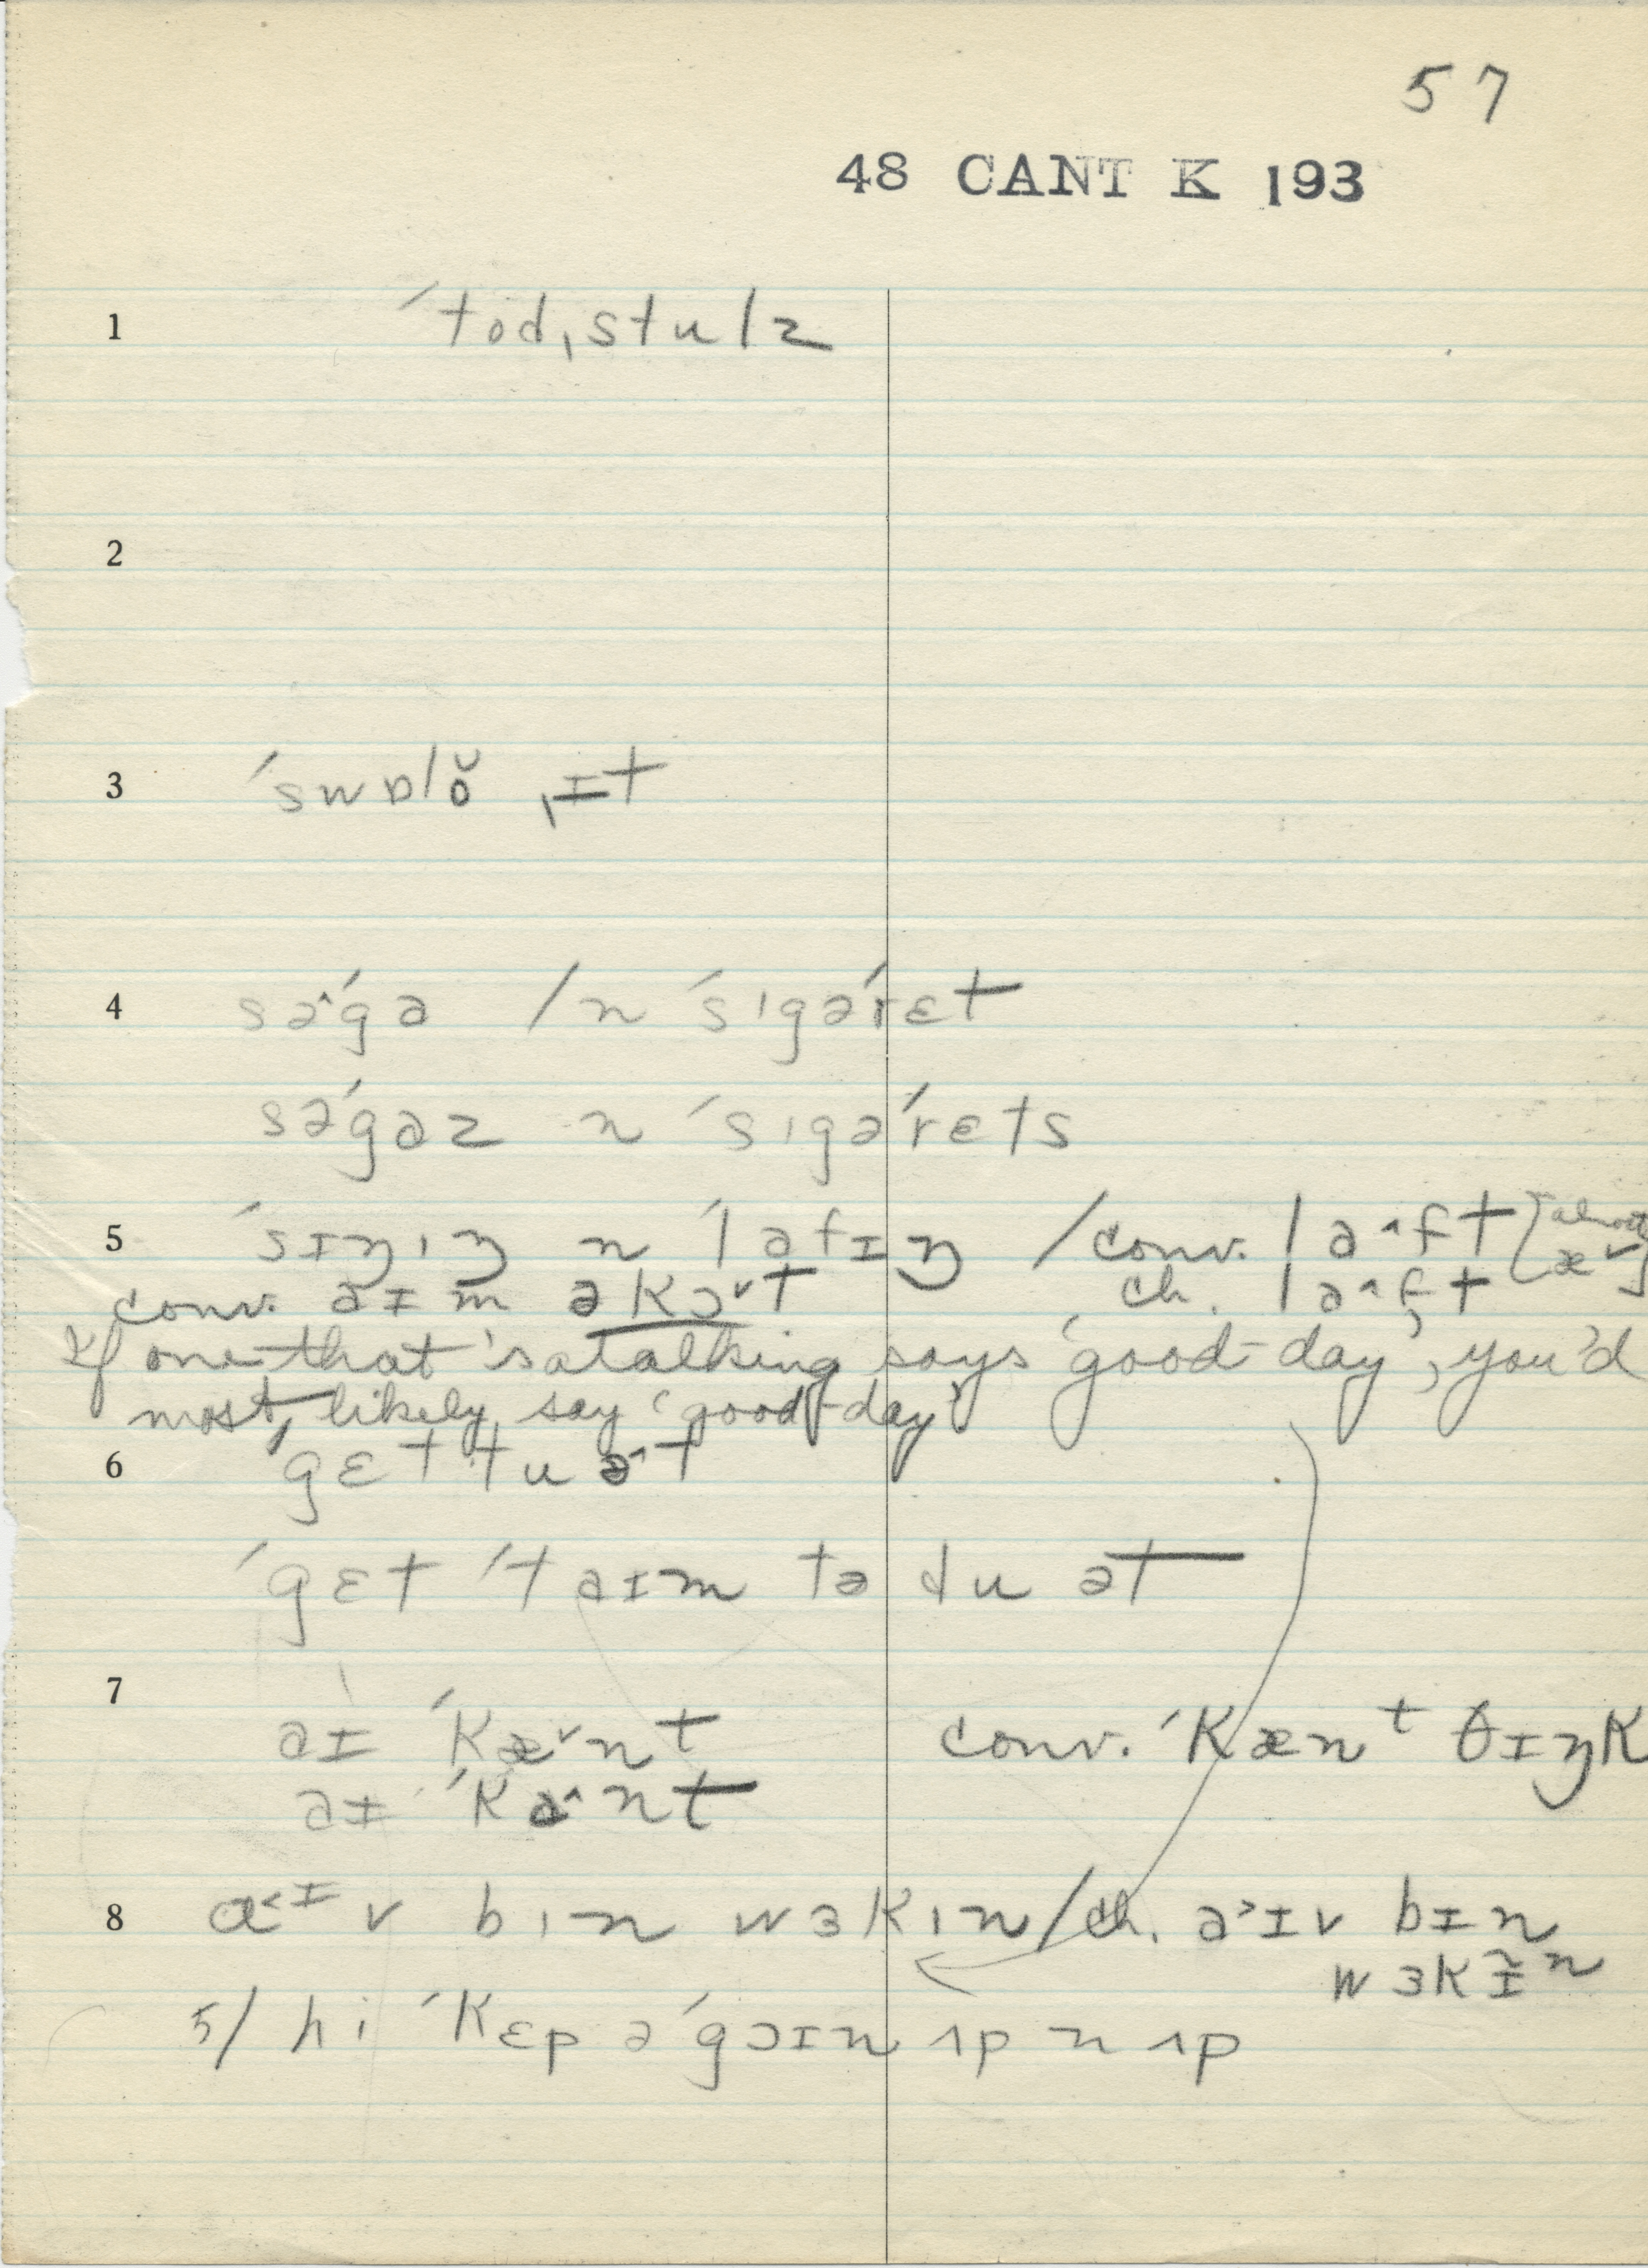 57
48 CANT K 193
1 ˈtod,stulz
2
3 ˈswɒlŏ ˌɪt
4 sə^ˈga /n ˈsɪgəˈrɛt
səˈgaz n ˈsɪgəˈrɛts
5 ˈsɪŋɪŋ n ˈlafɪŋ /conv. la^ft [almost æ˅]
conv. aɪm əkɔ˅t ch. la^ft
If one that's atalking says 'good-day', you'd
most likely say 'good-day'
6 ˈgɛt tu ə^t
ˈgɛt ˈtaɪm tə du ət
7
aɪ ˈkæ˅nt conv. ˈkænᵗ θɪŋk
aɪ ˈka^nt
8 ɑ<ɪ v bɪn wɜkɪn/ch. a>ɪv bɪn
wɜkɪ̃ⁿ
5/ hi ˈkɛp əˈgɔɪn ʌp n ʌp